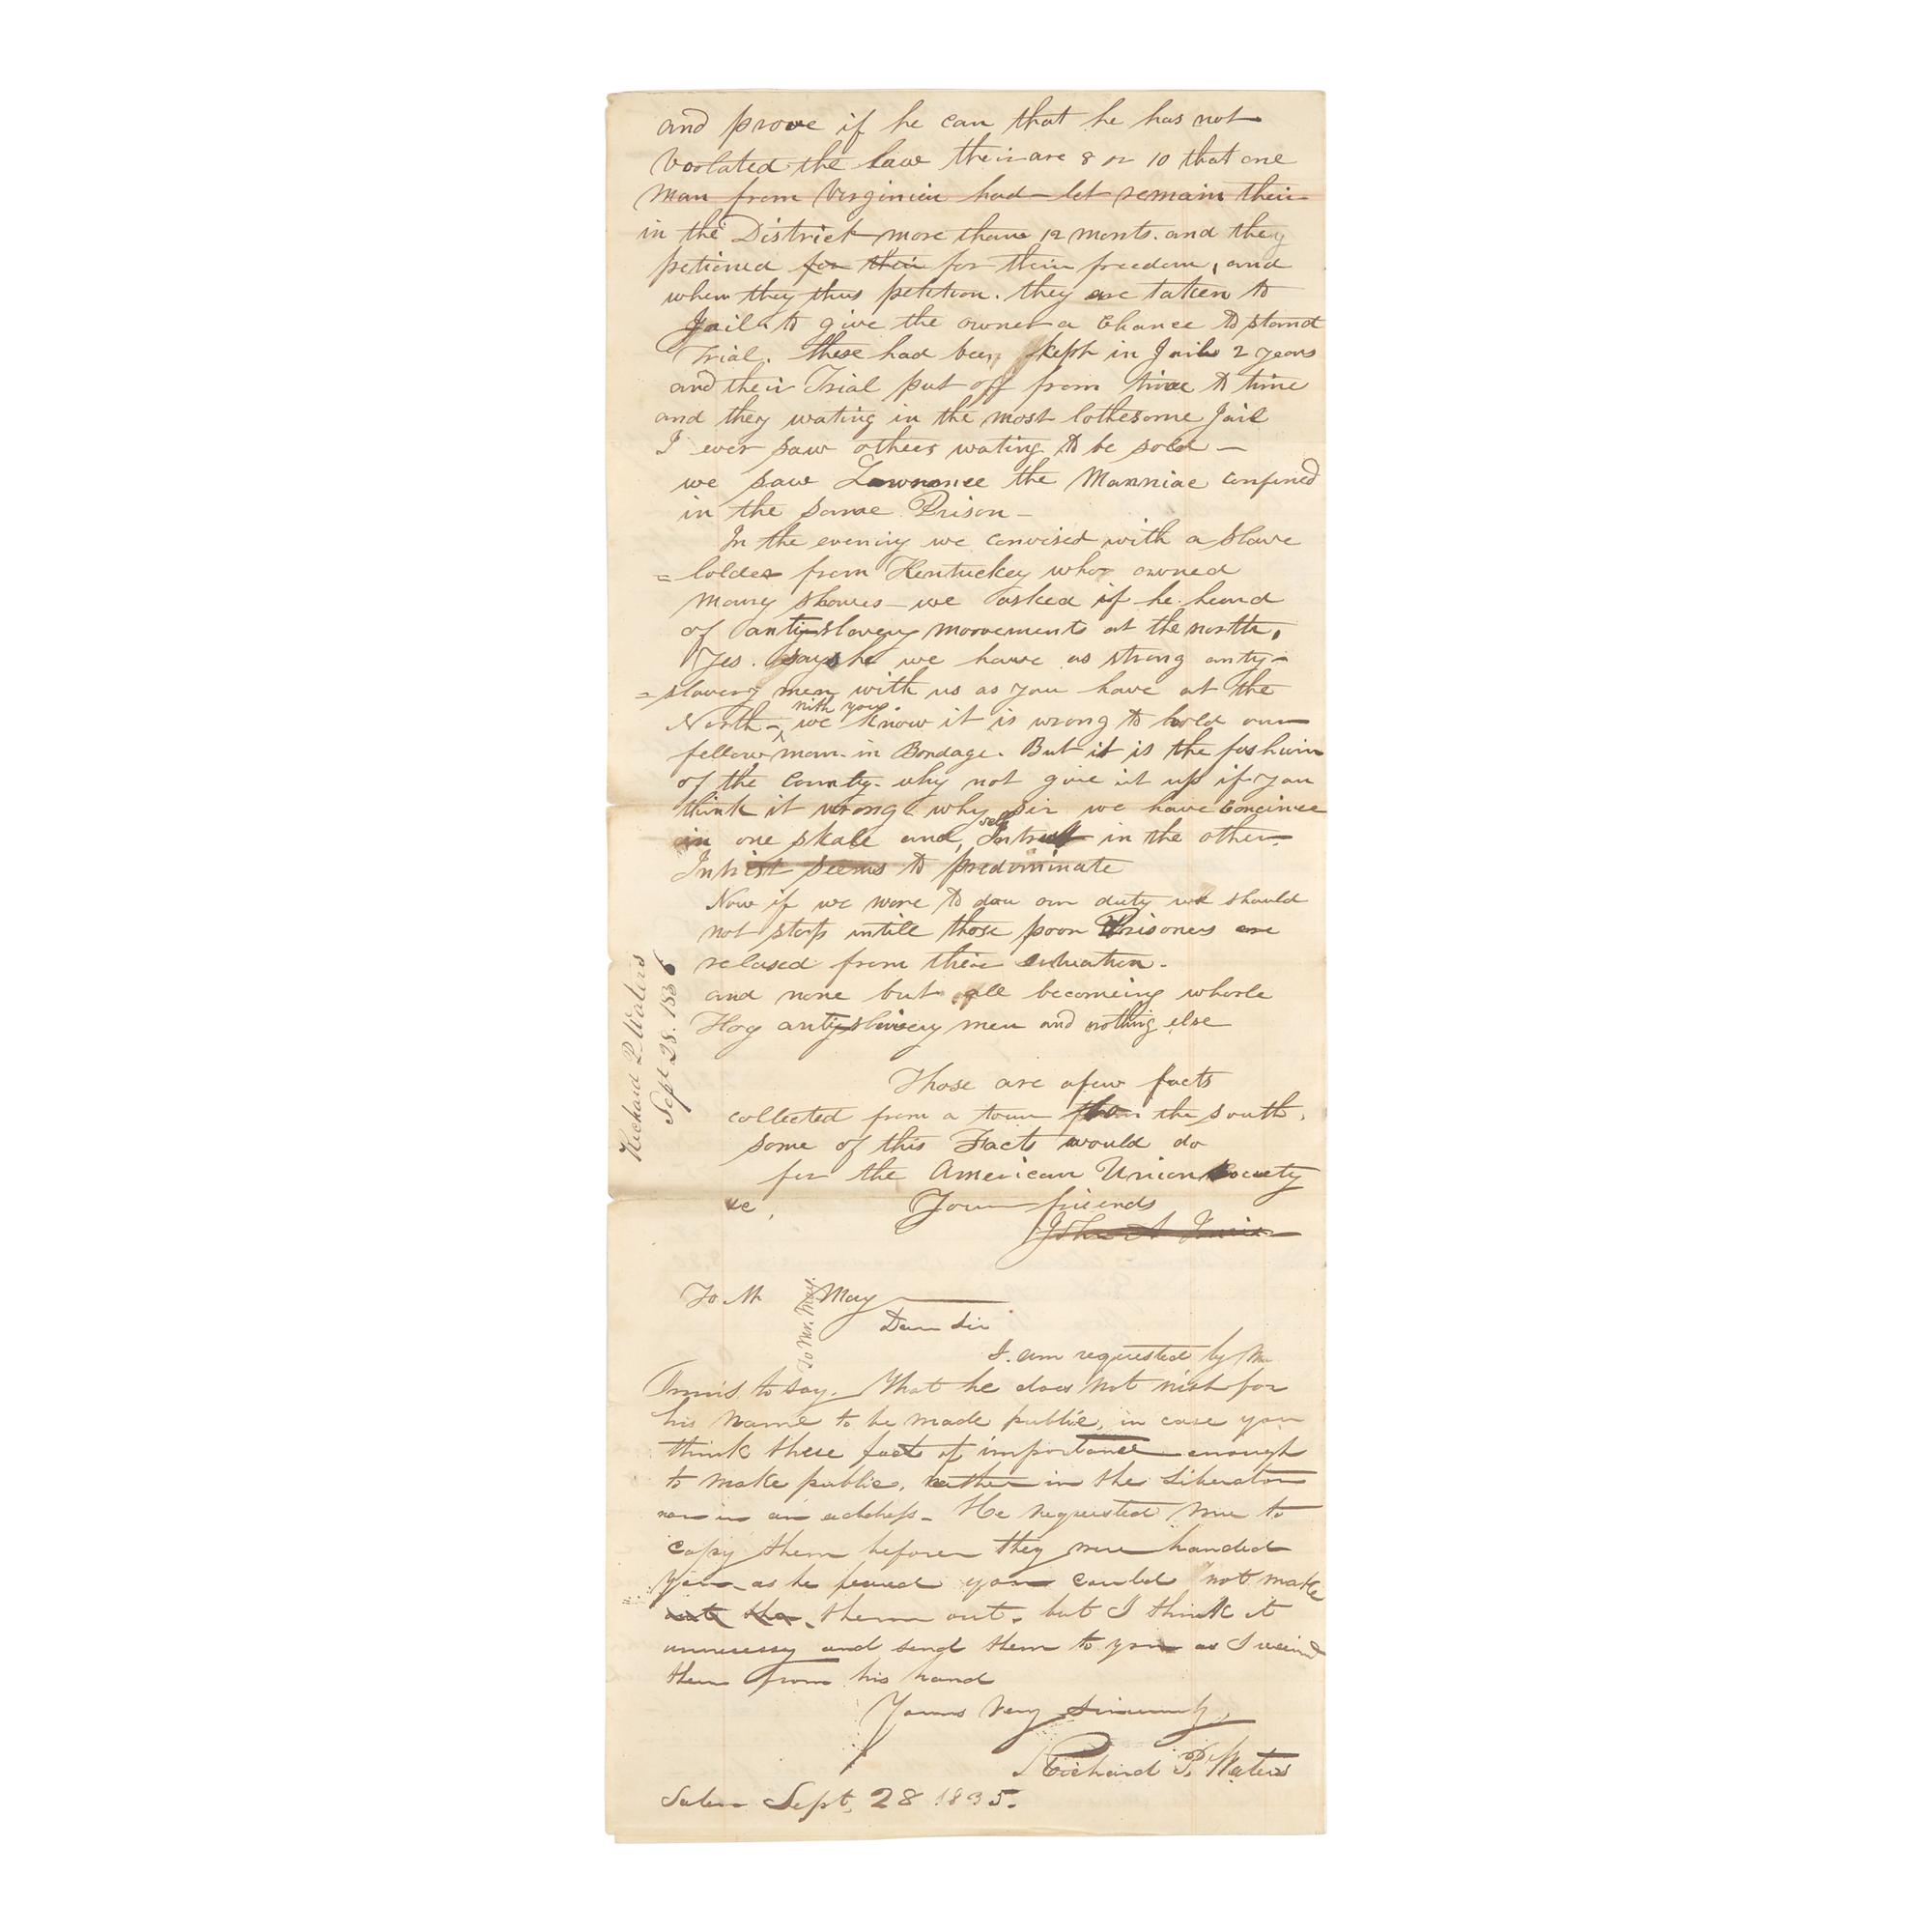 and prove if he can that he has not
Voolated the law their are 8 or 10 that one
man from Virginien had let remain their
in the District more than 12 monts. and they
petioned for their for their freedom, and
when they thus petition. they are taken to
Jail to give the owner a Chance to stand
Trial. these had been kept in Jail 2 years
and their Trial put off from time to time
and they wating in the most lothesome Jail
I ever saw others wating to be sold —
we saw Lawrance the Manniac confined
in the same Prison —
In the evening we convised with a slave
= holder from Kentuckey who owned
many slaves — we asked if he heard
of anty-slavery moovements at the north,
Yes. says he we have as strong anty-
= slavery men with us as you have at the
North — with you. we know it is wrong to hold our
fellow man in Bondage. But it is the fashion
of the county. why not give it up if you
think it wrong why sir we have Concince
in one skale and, self Intrest in the other.
Intrest seems to predominate
Now if we were to dou our duty we should
not stop untill those poor Prisoners are
relased from their situation.
and none but all becomeing whorle
Hog anty-slavery men and nothing else
Those are afew facts
collected from a tour from the south,
some of this Facts would do
for the American Union Society
&c, Your friends
John A Innis
Richard P Waters
Sept 28. 1836
To Mr May
To Mr. May.
Dear Sir
I am requested by Mr
Innis to say. that he does not wish for
his name to be made public, in case you
think these fact of importance enough
to make public, either in the Liberator
nor in an address — He requested me to
copy them before they were handed
you — as he feared you could not make
out the. them out. but I think it
unnecessy and send them to you as I recivd
them from his hand
Yours Very Sincerely,
Richard P. Waters
Salem Sept. 28 1835.